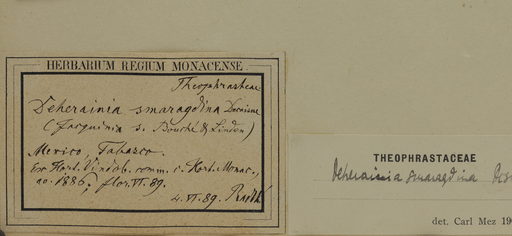 HERBARIUM REGIUM MONACENSE.
Theophrasteae
Deherainia smaragdina Decaisne
(Jacquinia s. Bouché & Linden)
Mexico, Tabasco.
ex Hort. Vindob. comm. c. Hort. Monac.,
ao. 1886, flor. VI. 89.
4. VI. 89.
THEOPHRASTACEAE
Deherainia smaragdina
det. Carl Mez